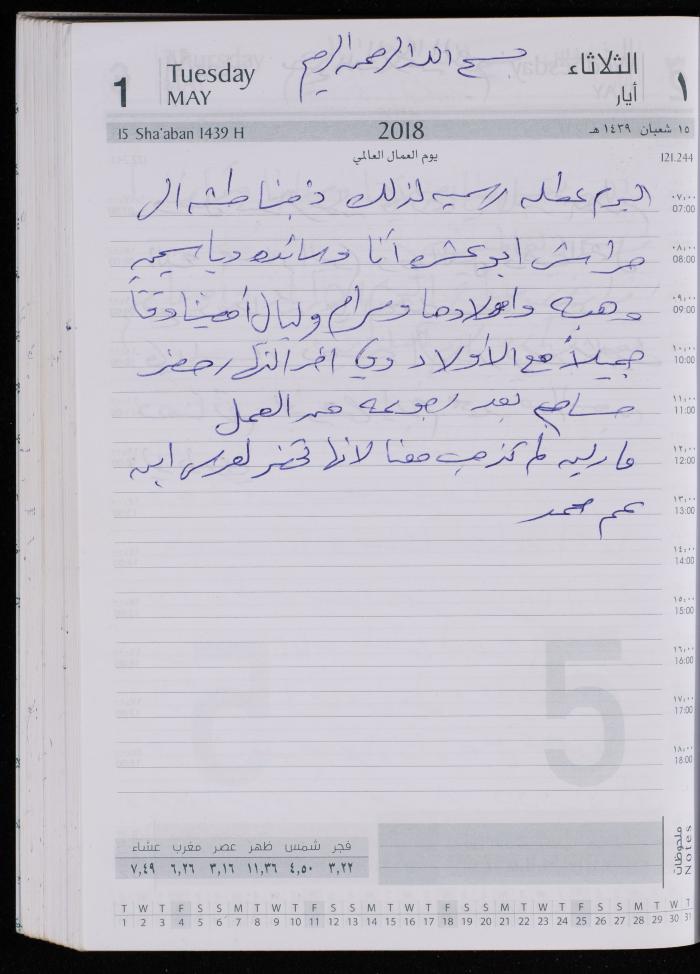 بسم الله الرحمن الرحيم
1 Tuesday MAY
الثلاثاء ١ أيار
15 Sha'aban 1439 H 2018 ١٥ شعبان ١٤٣٩ هـ
يوم العمال العالمي 121.244
اليوم عطله رسميه لذلك ذهبنا طشه الى
حراش ابو عشره أنا وسائده وياسمين
وهبه واولادها ومرام وليال أمضينا وقتاً
جميلاً مع الأولاد وفي اخر النهار حضر
بعد رجوعه من العمل
لم تذهب معنا لانها تحضر لعرس ابن
عم محمد
٠٧:٠٠ 07:00
٠٨:٠٠ 08:00
٠٩:٠٠ 09:00
١٠:٠٠ 10:00
١١:٠٠ 11:00
١٢:٠٠ 12:00
١٣:٠٠ 13:00
١٤:٠٠ 14:00
١٥:٠٠ 15:00
١٦:٠٠ 16:00
١٧:٠٠ 17:00
١٨:٠٠ 18:00
5
ملحوظات Notes
فجر شمس ظهر عصر مغرب عشاء
٣,٢٢ ٤,٥٠ ١١,٣٦ ٣,١٦ ٦,٢٦ ٧,٤٩
T W T F S S M T W T F S S M T W T F S S M T W T F S S M T W T
1 2 3 4 5 6 7 8 9 10 11 12 13 14 15 16 17 18 19 20 21 22 23 24 25 26 27 28 29 30 31